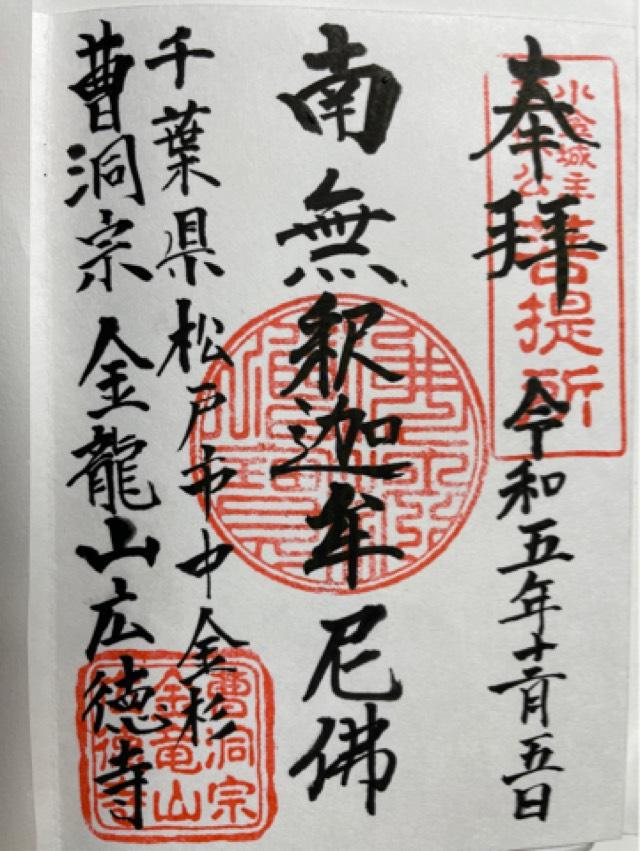 奉拝
令和五年十二月五日
小金城主
菩提所
南無釈迦牟尼佛
千葉県松戸市中金杉
曹洞宗 金龍山広徳寺
曹洞宗
金竜山